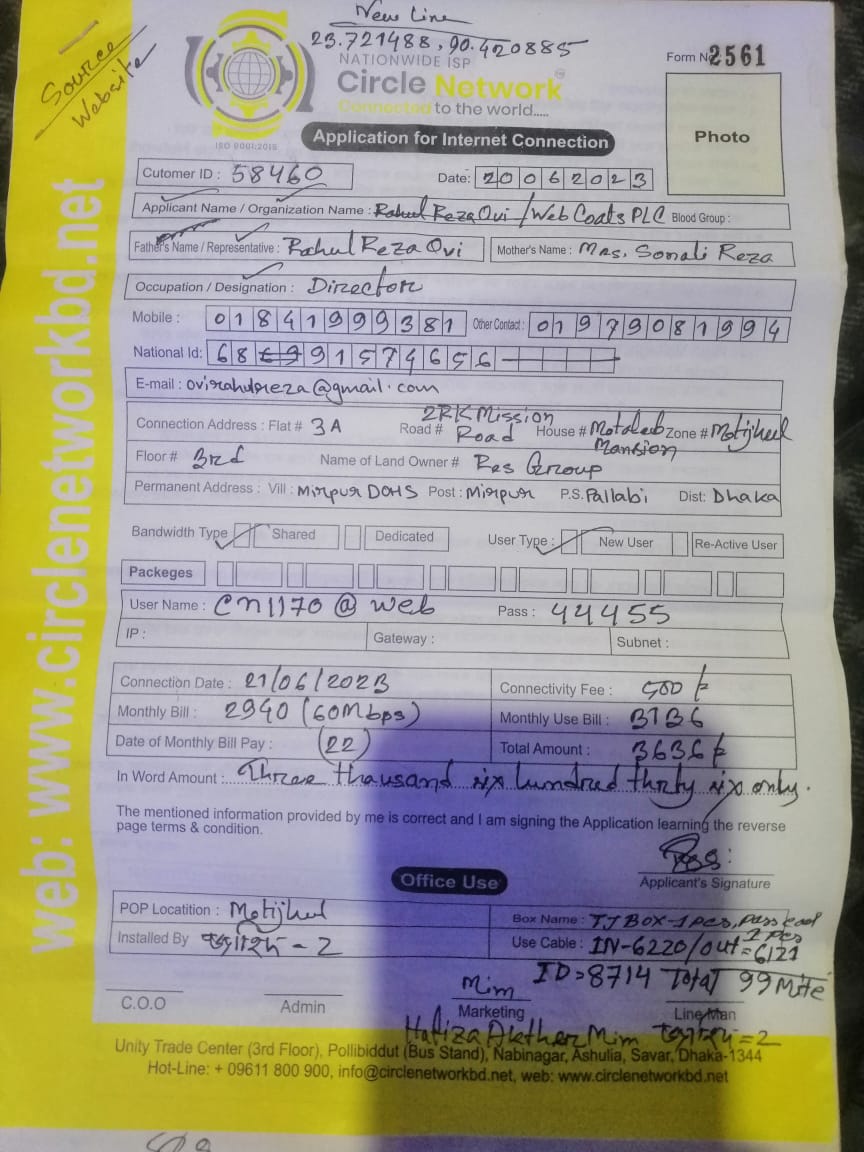 New Line
23.721488, 90.420885
Source
Website
NATIONWIDE ISP
Circle Network
Connected to the world.....
ISO 9001:2015
Form N 2561
Photo
Application for Internet Connection
Cutomer ID : 58460 Date: 20062023
Applicant Name / Organization Name : Rahul Reza Ovi / Web Coats PLC Blood Group :
Father's Name / Representative : Rahul Reza Ovi Mother's Name : Mrs. Sonali Reza
Occupation / Designation : Director
Mobile : 01841999381 Other Contact : 01979081994
National Id: 68 69 91574656
E-mail : ovirahulreza@gmail.com
Connection Address : Flat # 3A Road # 2RK Mission Road House # Motaleb Mansion Zone # Motijheel
Floor # 3rd Name of Land Owner # Res Group
Permanent Address : Vill : Mirpur DOHS Post : Mirpur P.S. Pallabi Dist: Dhaka
Bandwidth Type Shared Dedicated User Type : New User Re-Active User
Packeges
User Name : cn1170@web Pass : 44455
IP : Gateway : Subnet :
Connection Date : 21/06/2023 Connectivity Fee : 500/-
Monthly Bill : 2940 (60Mbps) Monthly Use Bill : 3136
Date of Monthly Bill Pay : (22) Total Amount : 3636/-
In Word Amount : Three thausand six hundred thirty six only.
The mentioned information provided by me is correct and I am signing the Application learning the reverse
page terms & condition.
Applicant's Signature
Office Use
POP Locatition : Motijheel Box Name : TJ BOX-1pcs, Pass cad 2 Pcs
Installed By - 2 Use Cable : IN-6220/out=6121
ID=8714 Total 99 Mite
Mim
C.O.O Admin Marketing Line Man
Hafiza Akther Mim =2
Unity Trade Center (3rd Floor), Pollibiddut (Bus Stand), Nabinagar, Ashulia, Savar, Dhaka-1344
Hot-Line: + 09611 800 900, info@circlenetworkbd.net, web: www.circlenetworkbd.net
web: www.circlenetworkbd.net